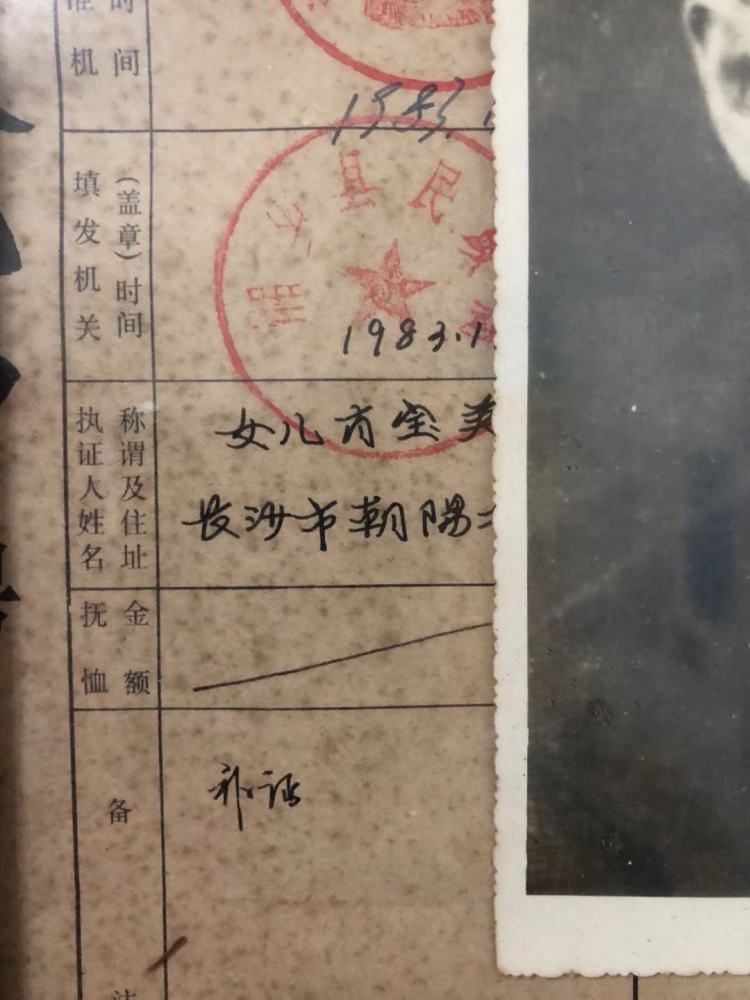 准机
时间
1983.1
填发机关
(盖章)时间
县
民
1983.1
执证人姓名
称谓及住址
女儿肖宝美
长沙市朝阳
抚恤
金额
备
补证